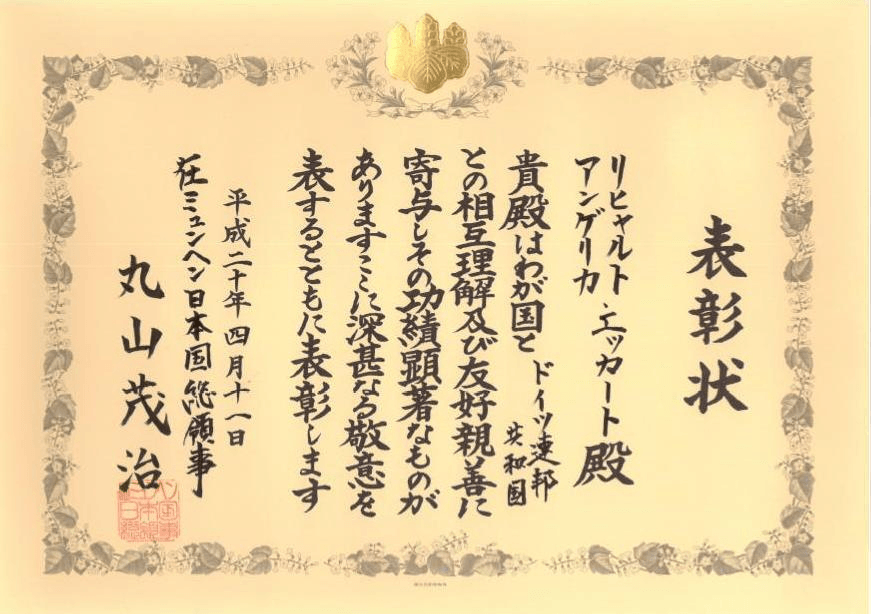 表彰状
リヒャルト・エッカート殿
アンゲリカ
貴殿はわが国とドイツ連邦共和国
との相互理解及び友好親善に
寄与しその功績顕著なものが
ありますここに深甚なる敬意を
表するとともに表彰します
平成二十年四月十一日
在ミュンヘン日本国総領事
丸山茂治